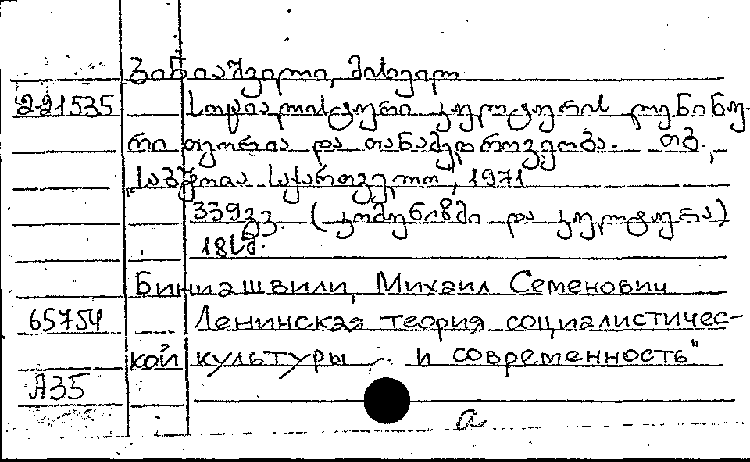 ბინიაშვილი, მიხეილ
2-21535 სოციალისტური კულტურის ლენინუ-
რი თეორია და თანამედროვეობა. თბ.,
„საბჭოთა საქართველო", 1971
339გვ. (კომუნიზმი და კულტურა)
Биниашвили, Михаил Семенович
65754 Ленинская теория социалистичес-
кой культуры и современность"
А35
а